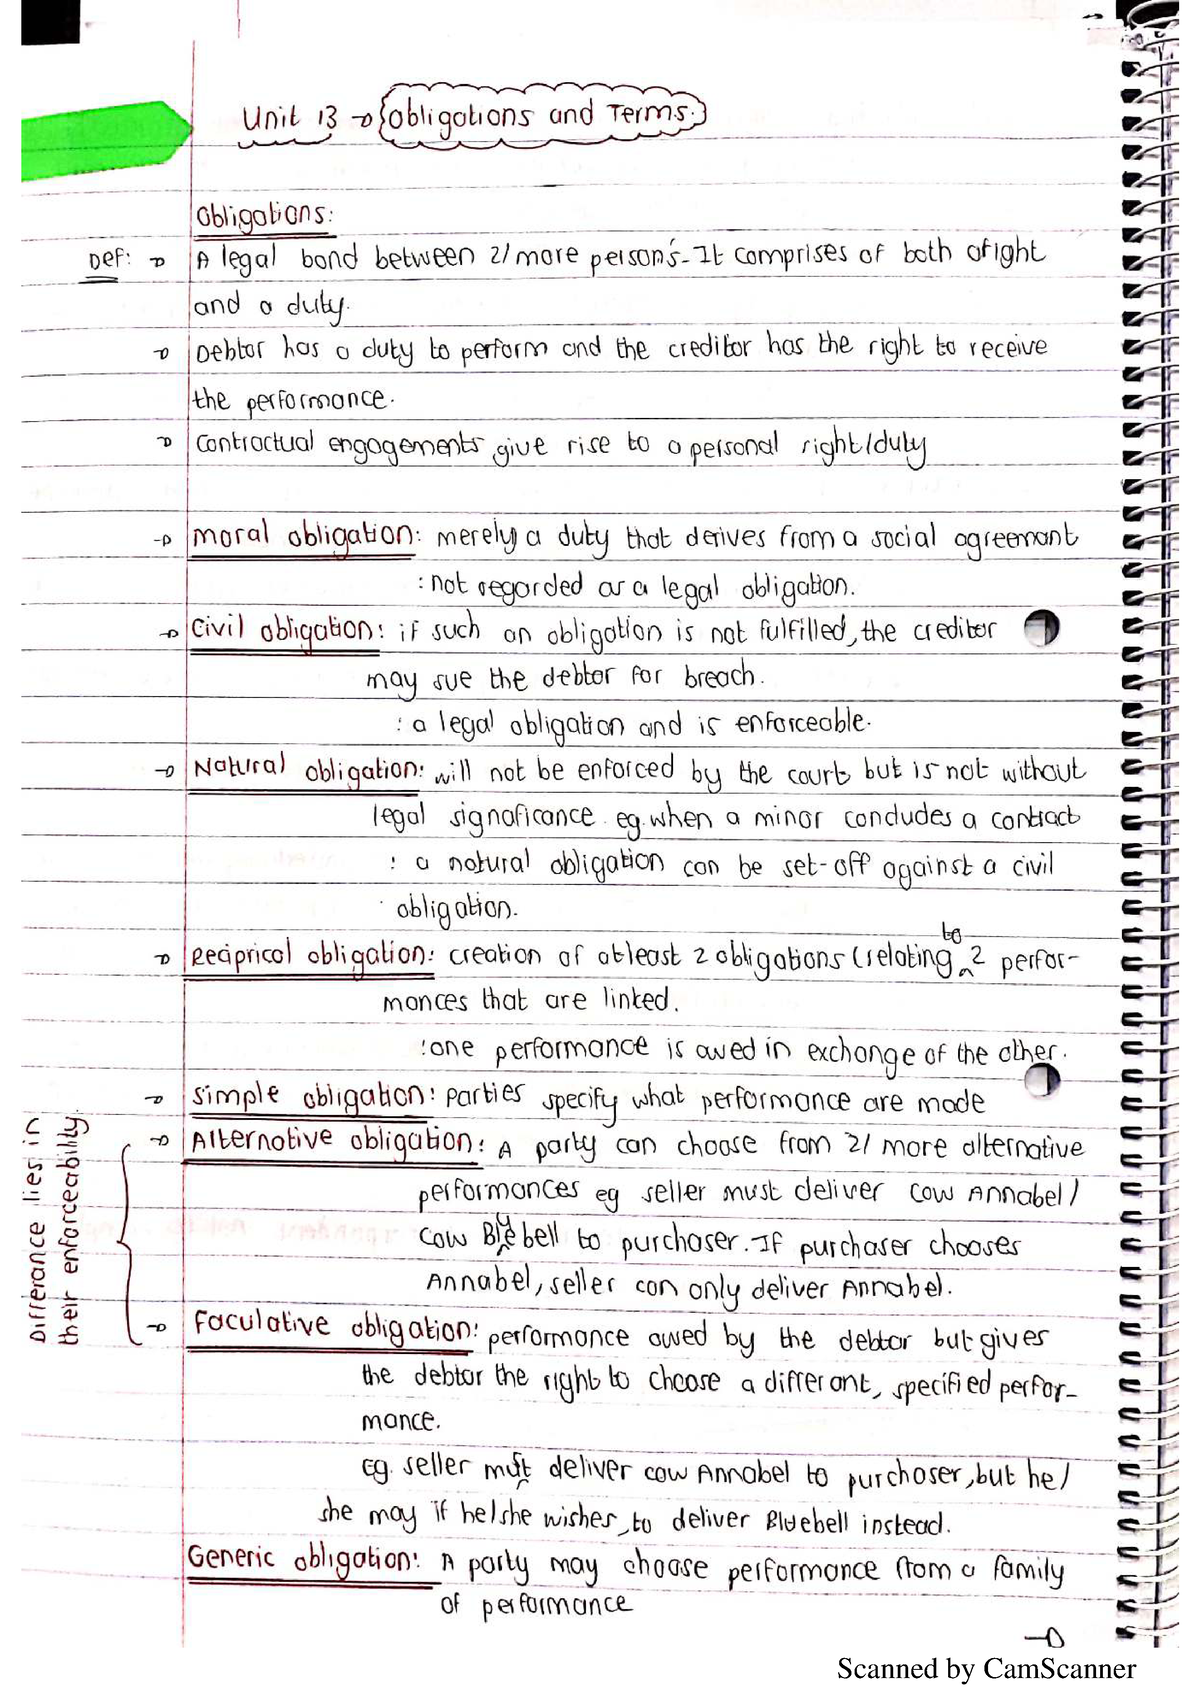 Unit 13 → Obligations and Terms.
Obligations:
Def: → A legal bond between 2/more person's. It comprises of both a right
and a duty.
→ Debtor has a duty to perform and the creditor has the right to receive
the performance.
→ Contractual engagements give rise to a personal right/duty
→ moral obligation: merely a duty that derives from a social agreemant
: not regarded as a legal obligation.
→ Civil obligation: if such an obligation is not fulfilled, the creditor
may sue the debtor for breach.
: a legal obligation and is enforceable.
→ Natural obligation: will not be enforced by the court but is not without
legal signaficance eg. when a minor concludes a contract
: a natural obligation can be set-off against a civil
obligation.
→ Recipricol obligation: creation of atleast 2 obligations (relating to 2 perfor-
mances that are linked.
: one performance is owed in exchange of the other.
→ Simple obligation: parties specify what performance are made
→ Alternative obligation: A party can choose from 2/ more alternative
performances eg seller must deliver cow Annabel/
cow Bluebell to purchaser. If purchaser chooses
Annabel, seller can only deliver Annabel.
Differance lies in
their enforceability.
→ Faculative obligation: performance owed by the debtor but gives
the debtor the right to choose a differant, specified perfor-
mance.
Eg. seller must deliver cow Annabel to purchaser, but he/
she may if he/she wishes, to deliver Bluebell instead.
Generic obligation: A party may choose performance from a family
of performance
→
Scanned by CamScanner